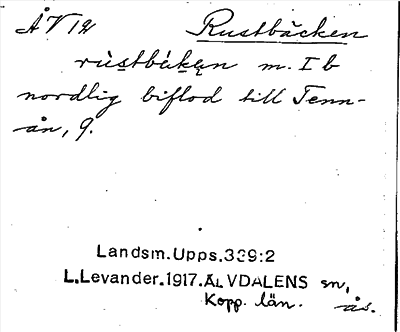 ÅV 121 Rustbäcken
rùstbä́kęn m. I b
nordlig biflod till Tenn-
ån, 9.
Landsm.Upps.339:2
L.Levander.1917.ÄLVDALENS sn,
Kopp. län. ås.